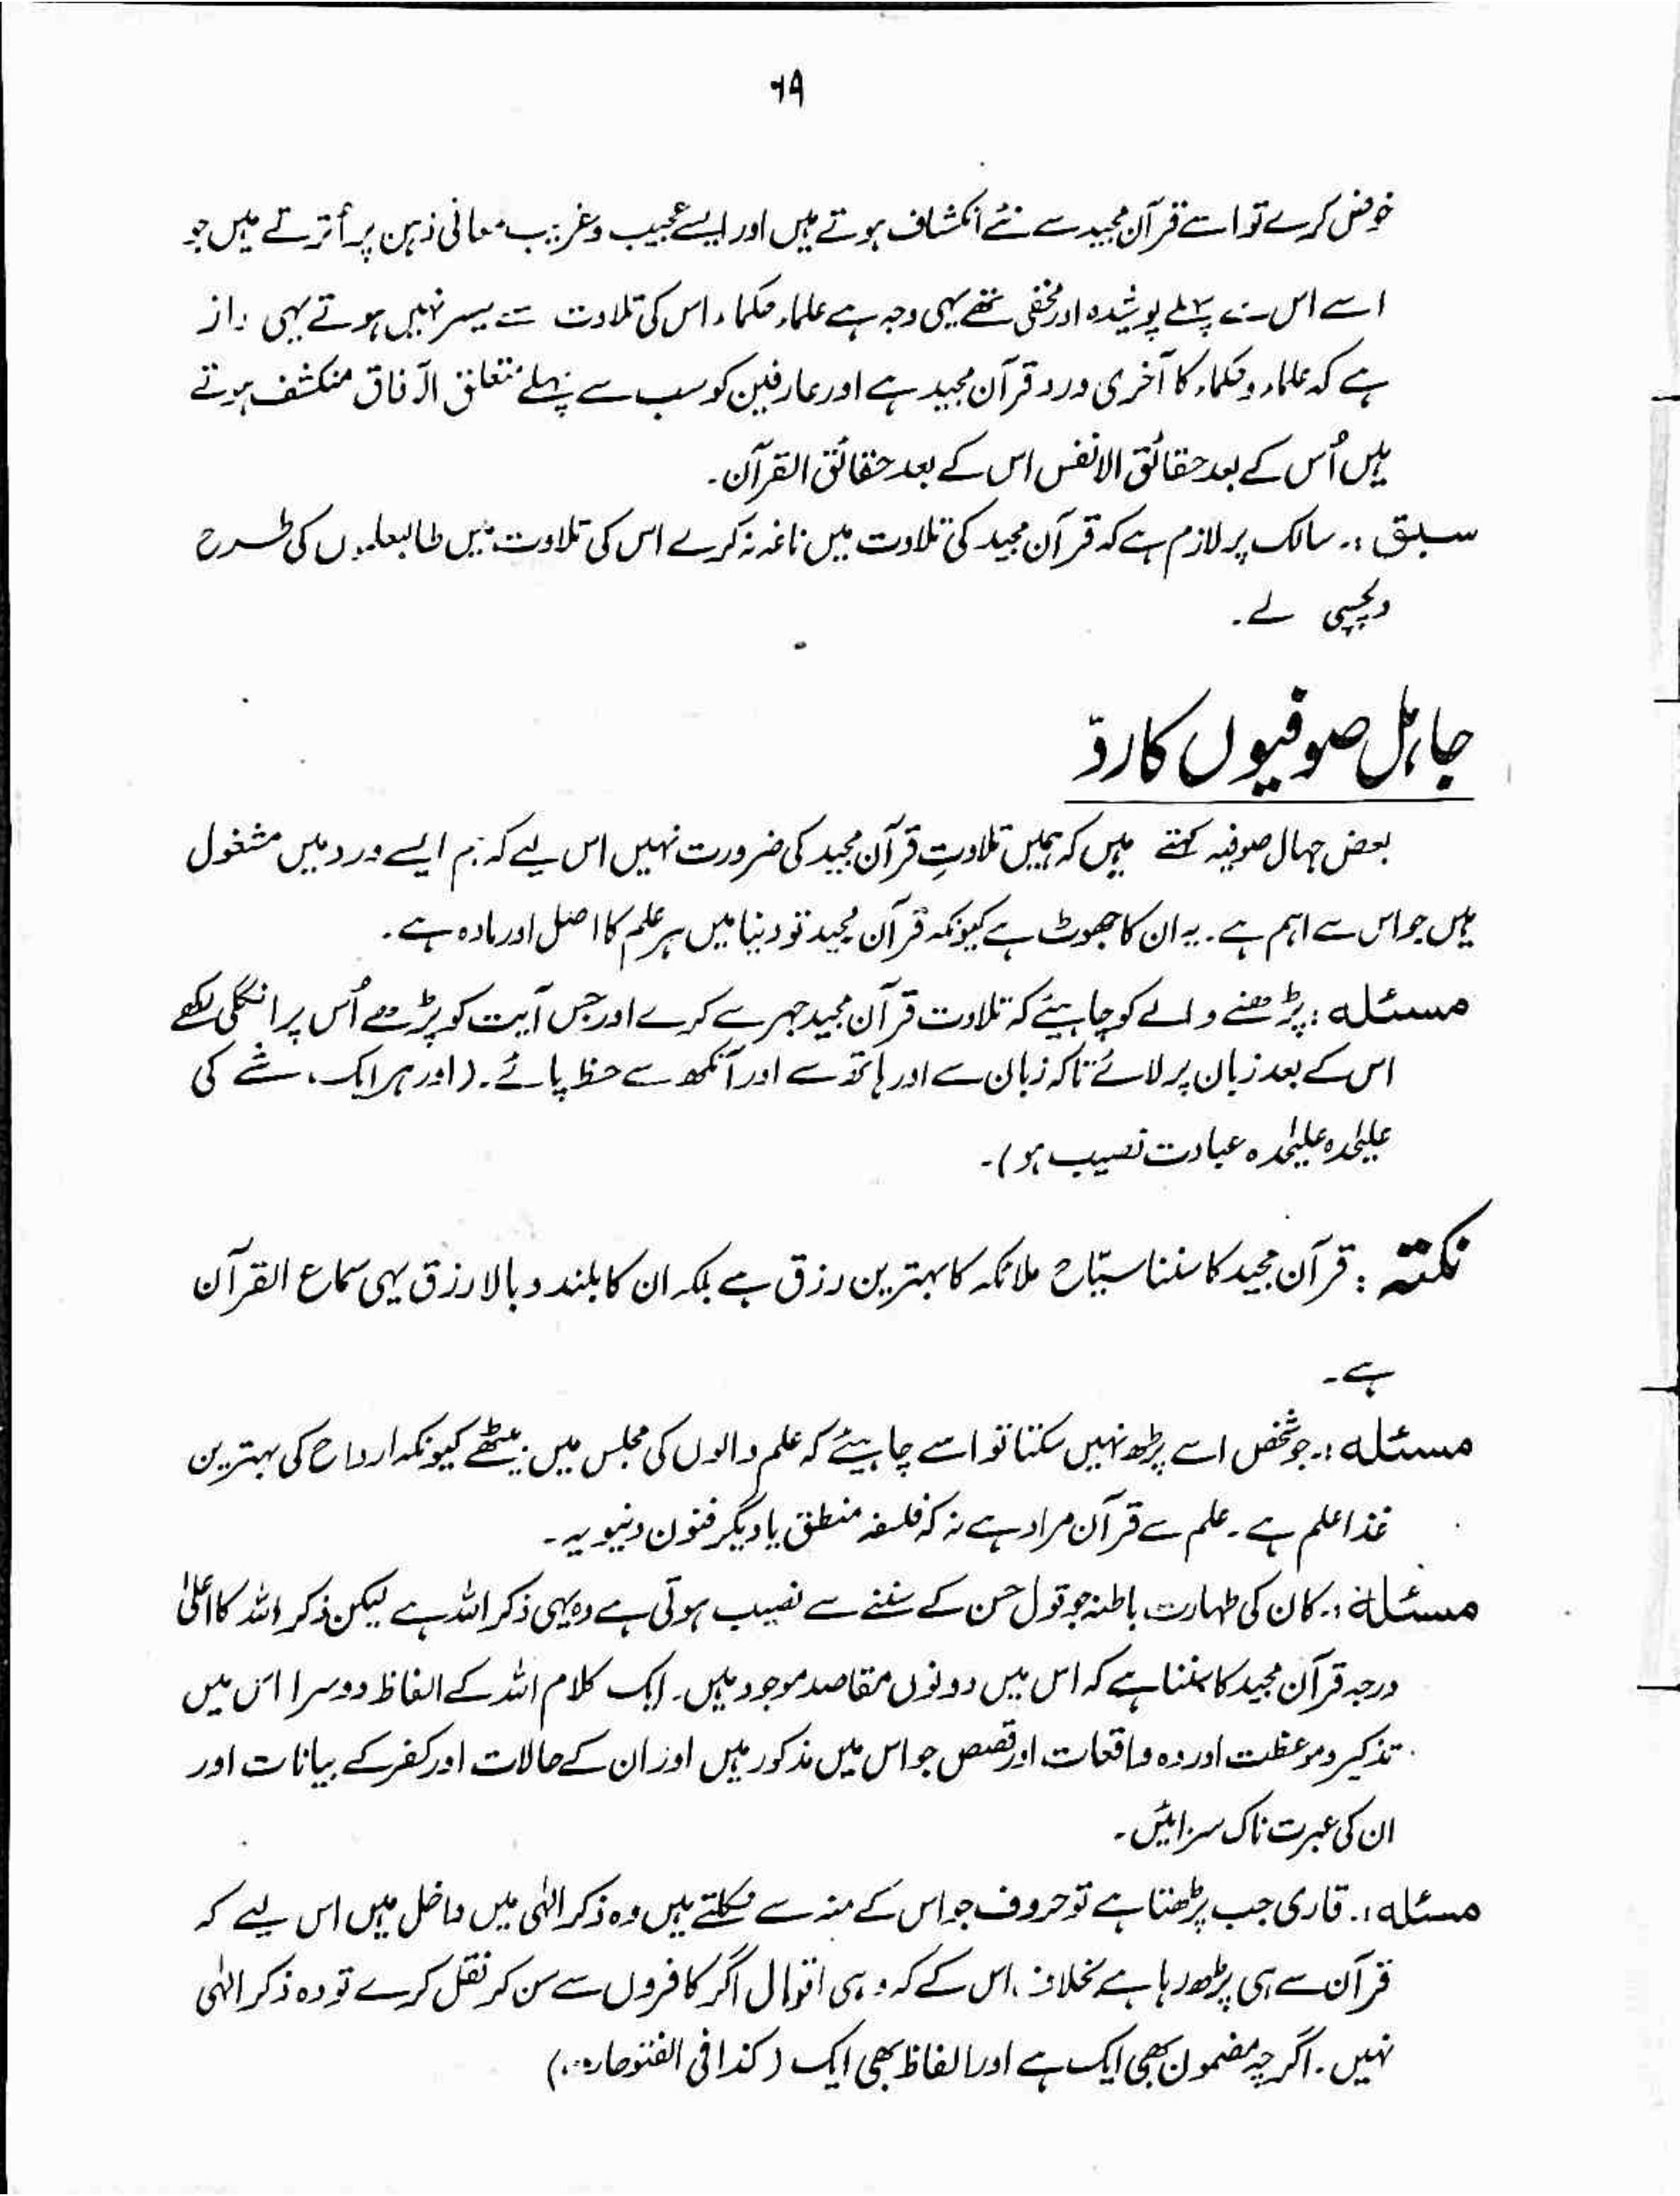 ۶۹
خوض کرے تو اسے قرآن مجید سے نئے انکشاف ہوتے ہیں اور ایسے عجیب و غریب معانی ذہن پر اُترتے ہیں جو
اسے اس سے پہلے پوشیدہ اور مخفی تھے یہی وجہ ہے علماء حکماء اس کی تلاوت سے سیر نہیں ہوتے یہی راز
ہے کہ علماء و حکماء کا آخری ورد قرآن مجید ہے اور عارفین کو سب سے پہلے متعلق الآفاق منکشف ہوتے
ہیں اُس کے بعد حقائق الانفس اس کے بعد حقائق القرآن۔
سبق :۔ سالک پر لازم ہے کہ قرآن مجید کی تلاوت میں ناغہ نہ کرے اس کی تلاوت میں طالبعلموں کی طرح
دلچسپی لے۔
جاہل صوفیوں کا ردّ
بعض جہال صوفیہ کہتے ہیں کہ ہمیں تلاوتِ قرآن مجید کی ضرورت نہیں اس لیے کہ ہم ایسے ورد میں مشغول
ہیں جو اس سے اہم ہے۔ یہ ان کا جھوٹ ہے کیونکہ قرآن مجید تو دنیا میں ہر علم کا اصل اور مادہ ہے۔
مسئلہ : پڑھنے والے کو چاہیئے کہ تلاوت قرآن مجید جہر سے کرے اور جس آیت کو پڑھے اُس پر انگلی رکھے
اس کے بعد زبان پر لائے تاکہ زبان سے اور ہاتھ سے اور آنکھ سے حظ پائے۔ (اور ہر ایک شے کی
علیٰحدہ علیٰحدہ عبادت نصیب ہو)۔
نکتہ : قرآن مجید کا سننا سیّاح ملائکہ کا بہترین رزق ہے بلکہ ان کا بلند و بالا رزق یہی سماع القرآن
ہے۔
مسئلہ :۔ جو شخص اسے پڑھ نہیں سکتا تو اسے چاہیئے کہ علم والوں کی مجلس میں بیٹھے کیونکہ ارواح کی بہترین
غذا علم ہے۔ علم سے قرآن مراد ہے نہ کہ فلسفہ منطق یا دیگر فنون دنیویہ۔
مسئلہ :۔ کان کی طہارت باطنہ جو قول حسن کے سننے سے نصیب ہوتی ہے وہ یہی ذکر اللہ ہے لیکن ذکر اللہ کا اعلیٰ
درجہ قرآن مجید کا سننا ہے کہ اس میں دونوں مقاصد موجود ہیں۔ ایک کلام اللہ کے الفاظ دوسرا اس میں
تذکیر و موعظت اور وہ واقعات اور قصص جو اس میں مذکور ہیں اور ان کے حالات اور کفر کے بیانات اور
ان کی عبرت ناک سزائیں۔
مسئلہ :۔ قاری جب پڑھتا ہے تو حروف جو اس کے منہ سے نکلتے ہیں وہ ذکر الٰہی میں داخل ہیں اس لیے کہ
قرآن سے ہی پڑھ رہا ہے بخلاف اس کے کہ وہی اقوال اگر کافروں سے سن کر نقل کرے تو وہ ذکر الٰہی
نہیں۔ اگرچہ مضمون بھی ایک ہے اور الفاظ بھی ایک (کذا فی